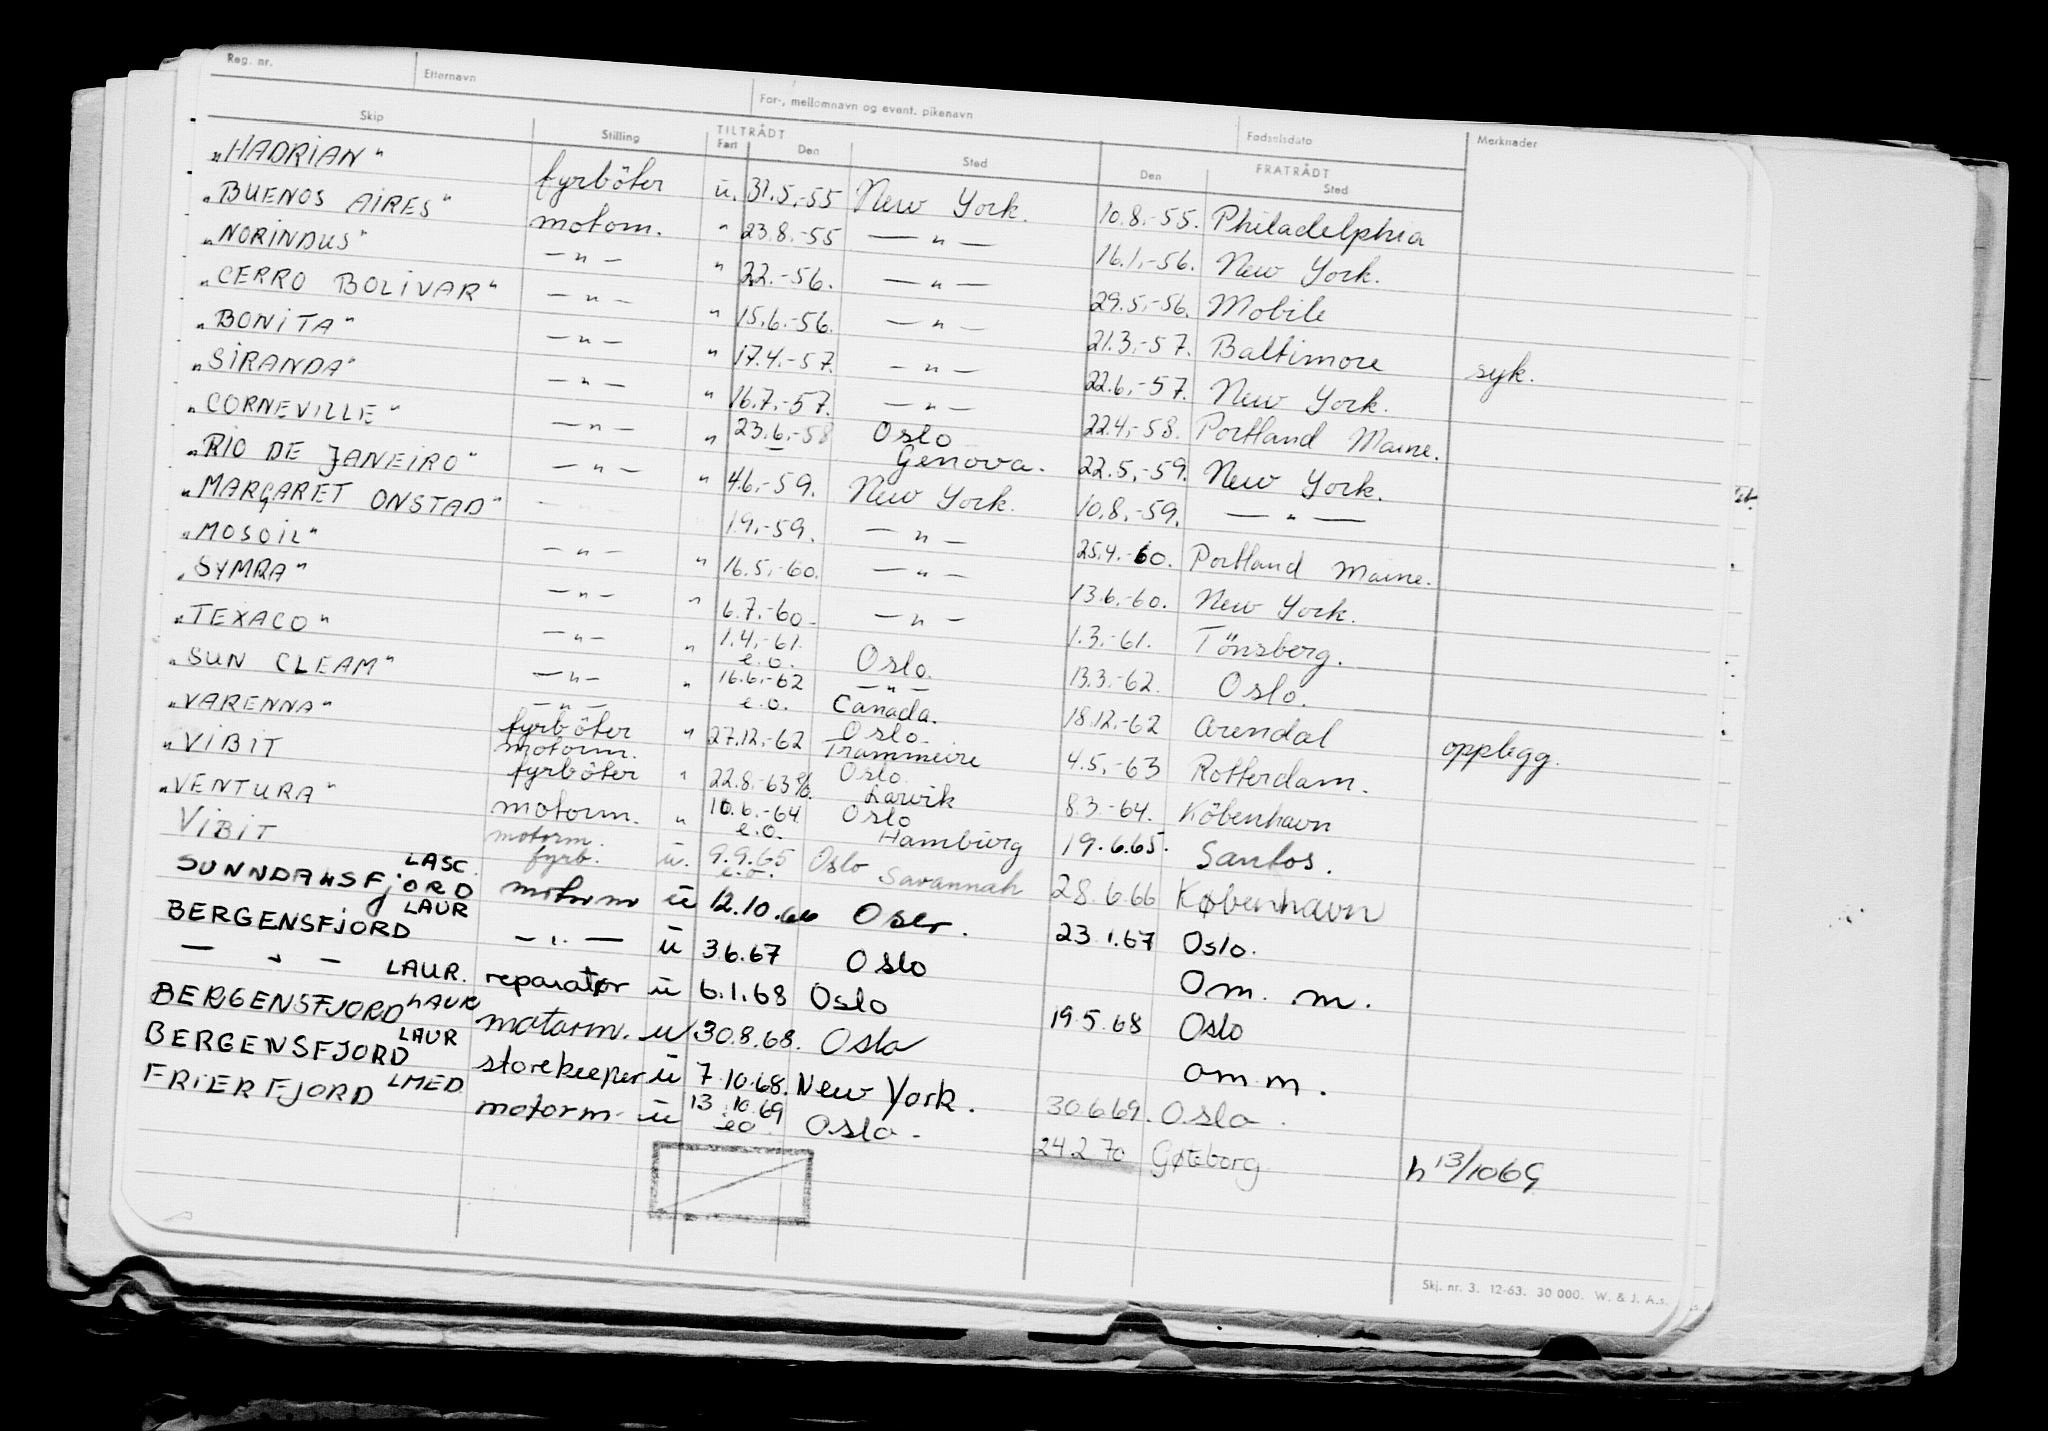 Reg. nr. Etternavn For-, mellomnavn og event. pikenavn Fødselsdato Merknader
Skip Stilling TILTRÅDT FRATRÅDT
Fart Den Sted Den Sted
"HADRIAN" fyrböter ü. 31.5.-55 New York. 10.8.-55. Philadelphia
"BUENOS AIRES" motom. " 23.8.-55 — " — 16.1.-56. New York.
"NORINDUS" — " — " 22.-56. — " — 29.5.-56. Mobile
"CERRO BOLIVAR" — " — " 15.6.-56. — " — 21.3.-57. Baltimore syk.
"BONITA" — " — " 17.4.-57. — " — 22.6.-57. New York.
"SIRANDA" — " — " 16.7.-57. — " — 22.4.-58. Portland Maine.
"CORNEVILLE" — " — " 23.6.-58 Oslo Genova. 22.5.-59. New York.
"RIO DE JANEIRO" — " — " 4.6.-59. New York. 10.8.-59. — " —
"MARGARET ONSTAD" 1.9.-59. — " — 25.4.-60. Portland Maine.
"MOSOIL" — " — " 16.5.-60. — " — 13.6.-60. New York.
"SYMRA" — " — " 6.7.-60. — " — 1.3.-61. Tönsberg.
"TEXACO" — " — " 1.4.-61. e.o. Oslo. 13.3.-62. Oslo.
"SUN CLEAM" — " — " 16.6.-62 e.o. — " — Canada. 18.12.-62 Arendal opplegg.
"VARENNA" — " — fyrböter " 27.12.-62 Oslo Trammeire 4.5.-63 Rotterdam.
"VIBIT motorm. fyrböter " 22.8.-63 e/o. Oslo. Larvik 8.3-64. Köbenhavn
"VENTURA" motorm. " 10.6.-64 e.o. Oslo Hamburg 19.6.65. Santos.
VIBIT motorm. fyrb. ü. 9.9.65 e.o. Oslo Savannah 28.6.66 København
SUNNDAHSFJORD LASC. motorm ü 12.10.66 Oslo. 23.1.67 Oslo.
BERGENSFJORD LAUR — " — ü 3.6.67 Oslo Om. m.
— " — LAUR. reparatør ü 6.1.68 Oslo 19.5.68 Oslo
BERGENSFJORD LAUR motorm. u 30.8.68. Oslo om m.
BERGENSFJORD LAUR storekeeper ü 7.10.68. New York. 30.6.69. Oslo.
FRIERFJORD LMED motorm. ü 13.10.69 eo Oslo. 24.2.70 Gøteborg h 13/1069
Skj. nr. 3. 12-63. 30 000. W. & J. A.s.